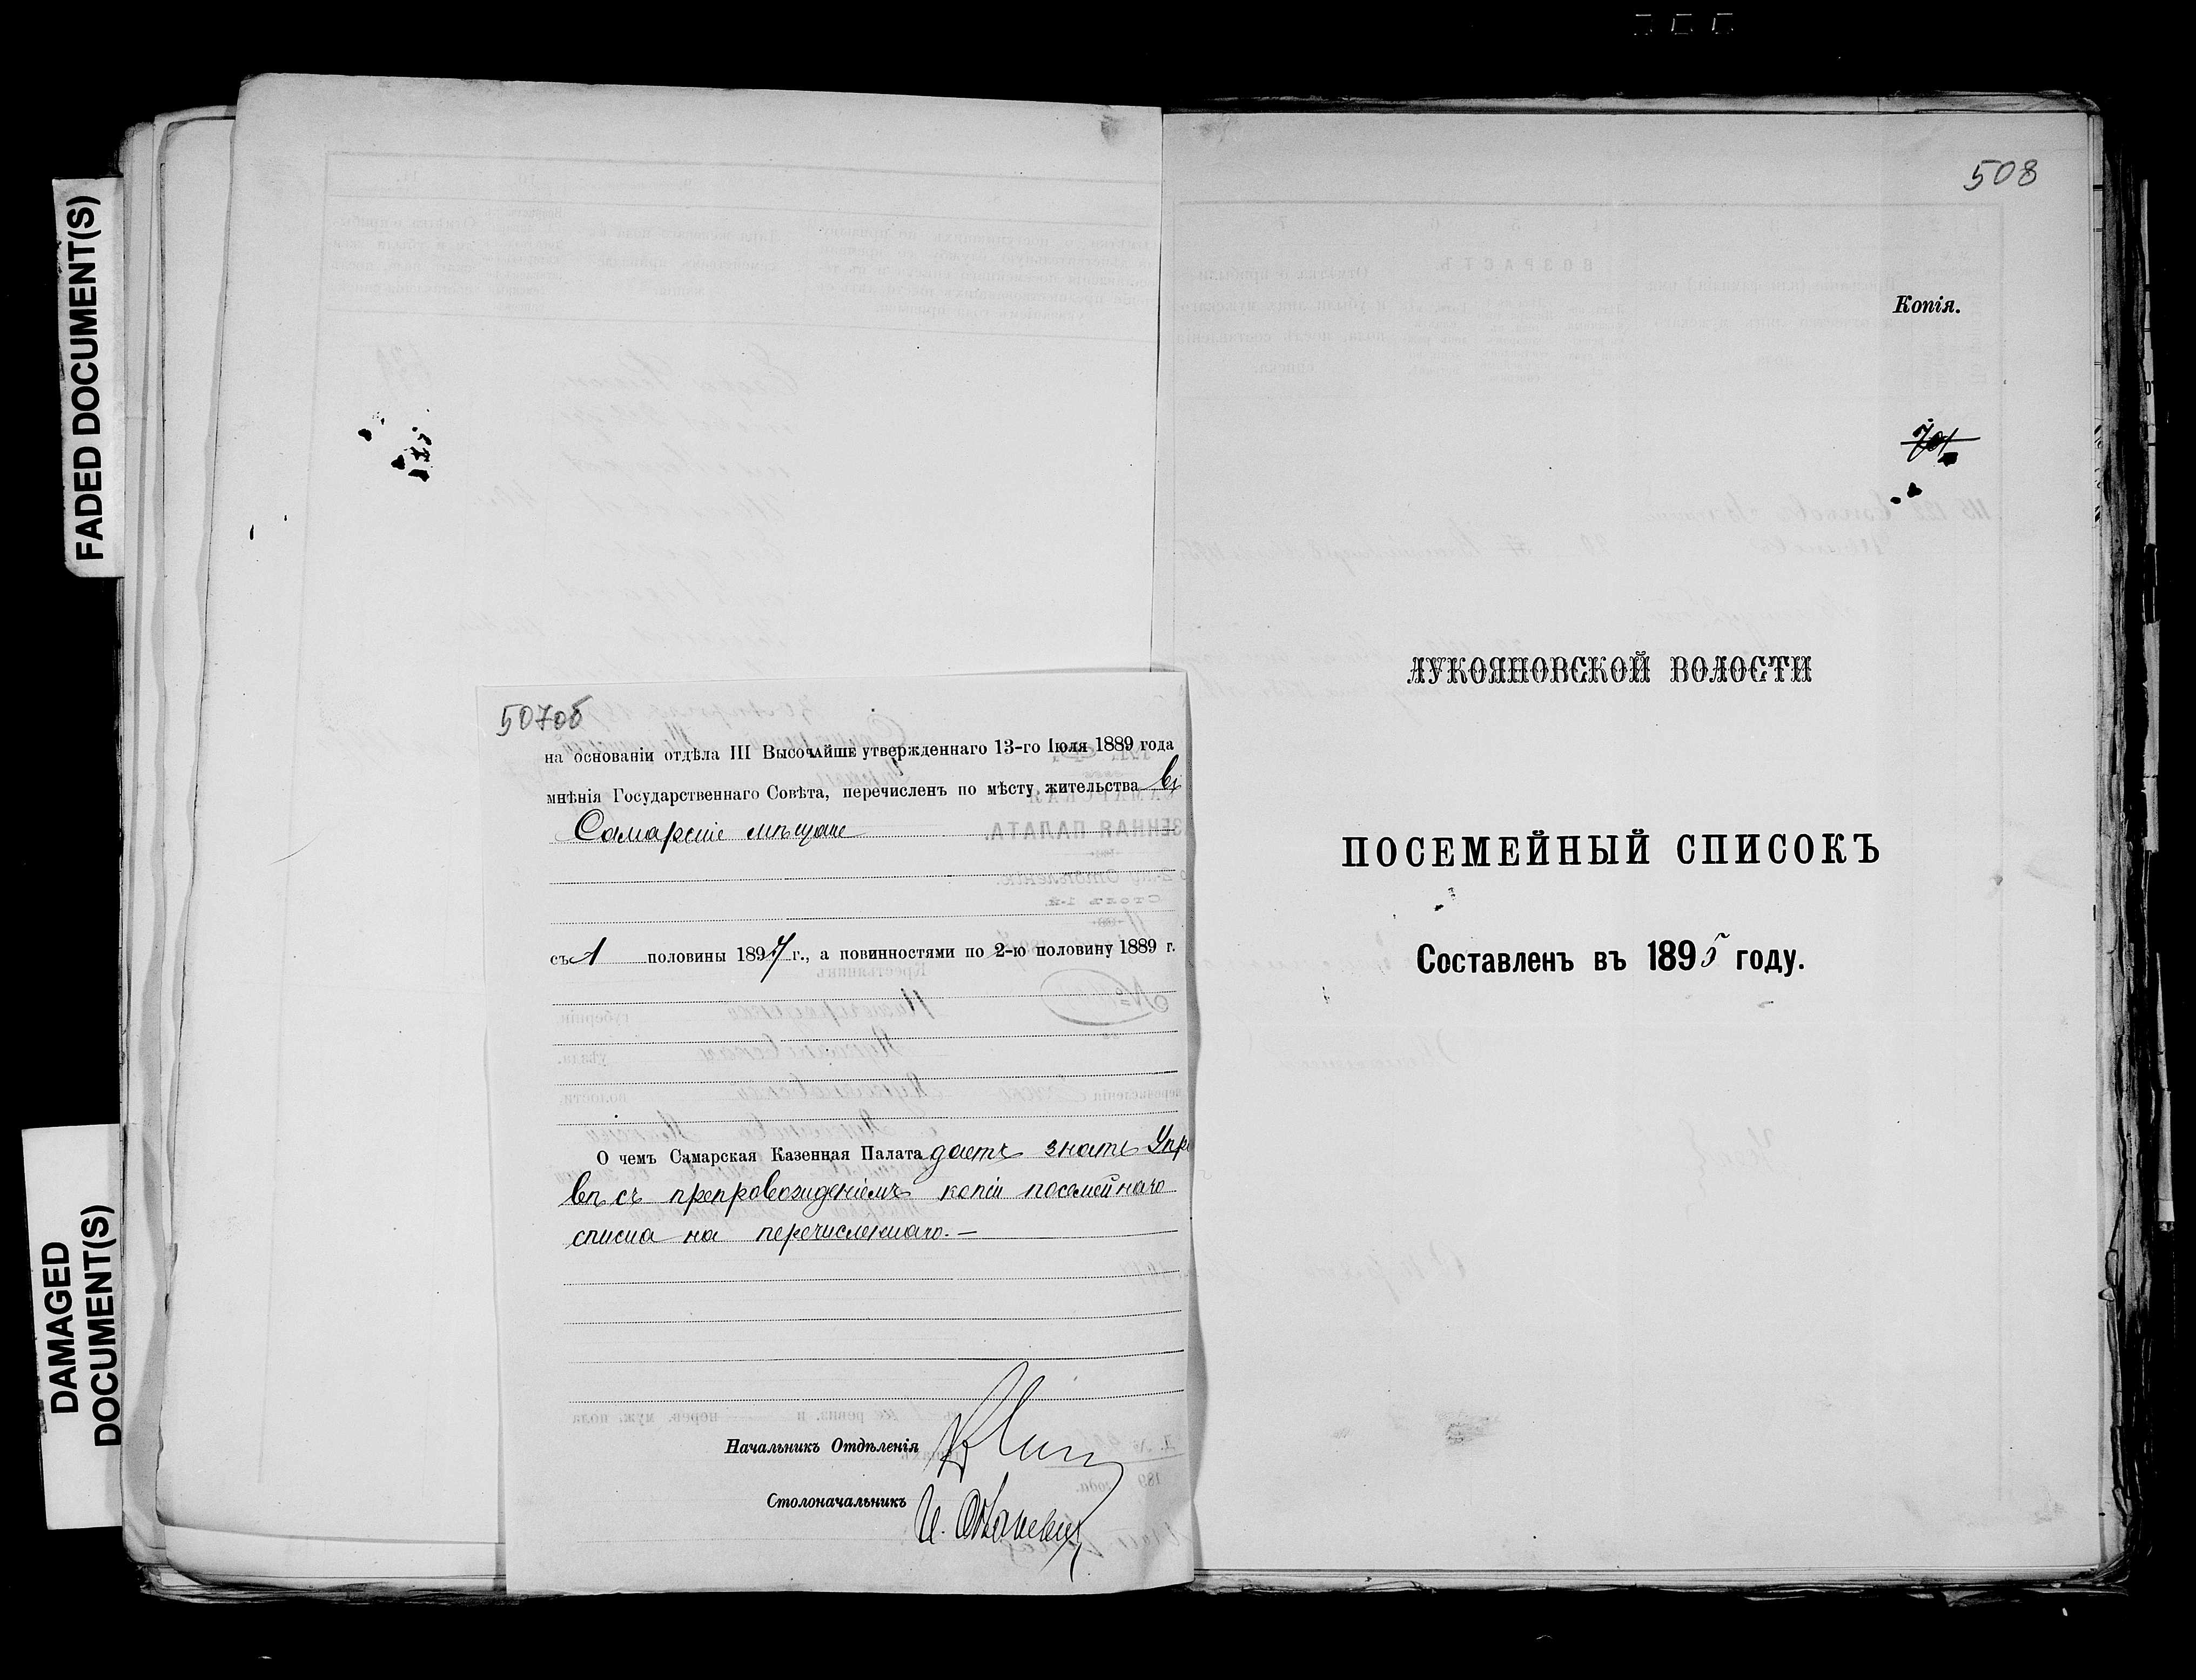 FADED DOCUMENT(S)
DAMAGED
DOCUMENT(S)
507об
на основаніи отдѣла III Высочайше утвержденнаго 13-го Іюля 1889 года
мнѣнія Государственнаго Совѣта, перечисленъ по мѣсту жительства въ
Самарскіе мѣщане
съ 1 половины 1897 г., а повинностями по 2-ю половину 1889 г.
О чемъ Самарская Казенная Палата даетъ знать Упра
вѣ съ препровожденіемъ копіи посемейнаго
списка на перечисленнаго. —
Начальникъ Отдѣленія
Столоначальникъ
508
Копія.
701
ЛУКОЯНОВСКОЙ ВОЛОСТИ
ПОСЕМЕЙНЫЙ СПИСОКЪ
Составленъ въ 1895 году.